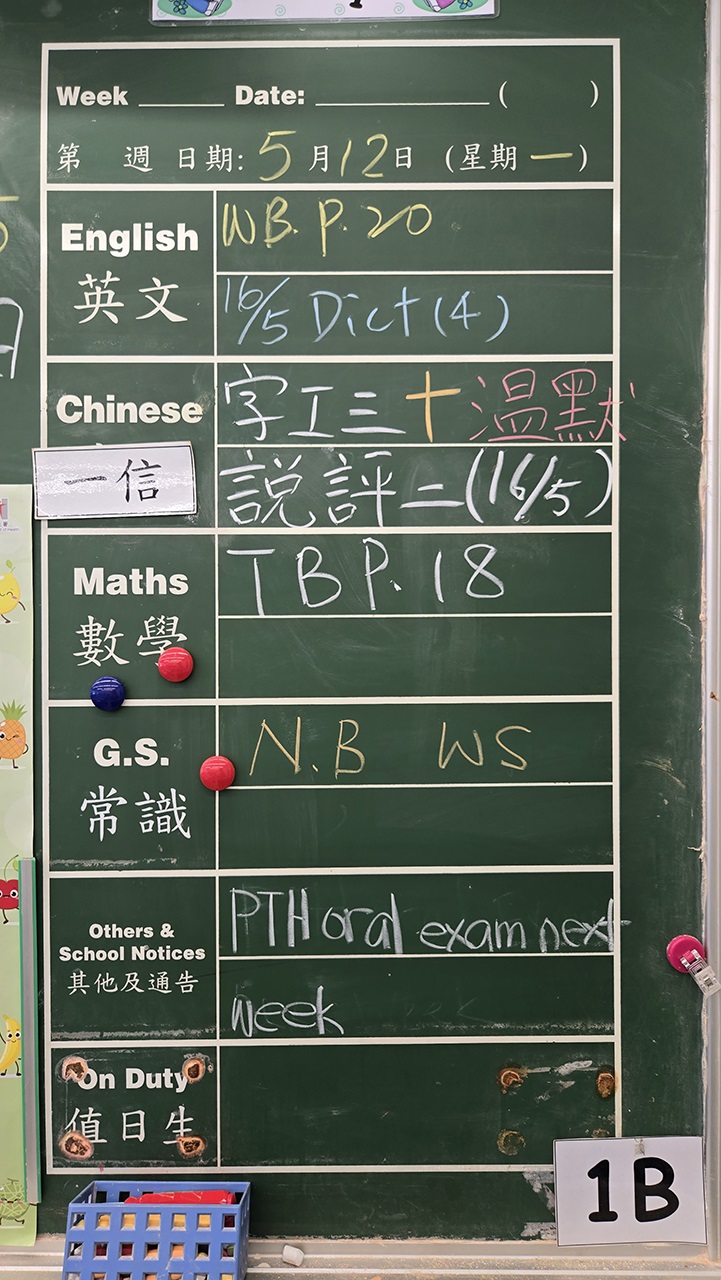 Week ______ Date: ____________ ( )
第 週 日期: 5月12日 (星期一)
English
英文
WB. P. 20
16/5 Dict (4)
Chinese
一信
字工三十溫默
説評二(16/5)
Maths
數學
TB P. 18
G.S.
常識
N.B WS
Others &
School Notices
其他及通告
PTH oral exam next
week
On Duty
值日生
1B